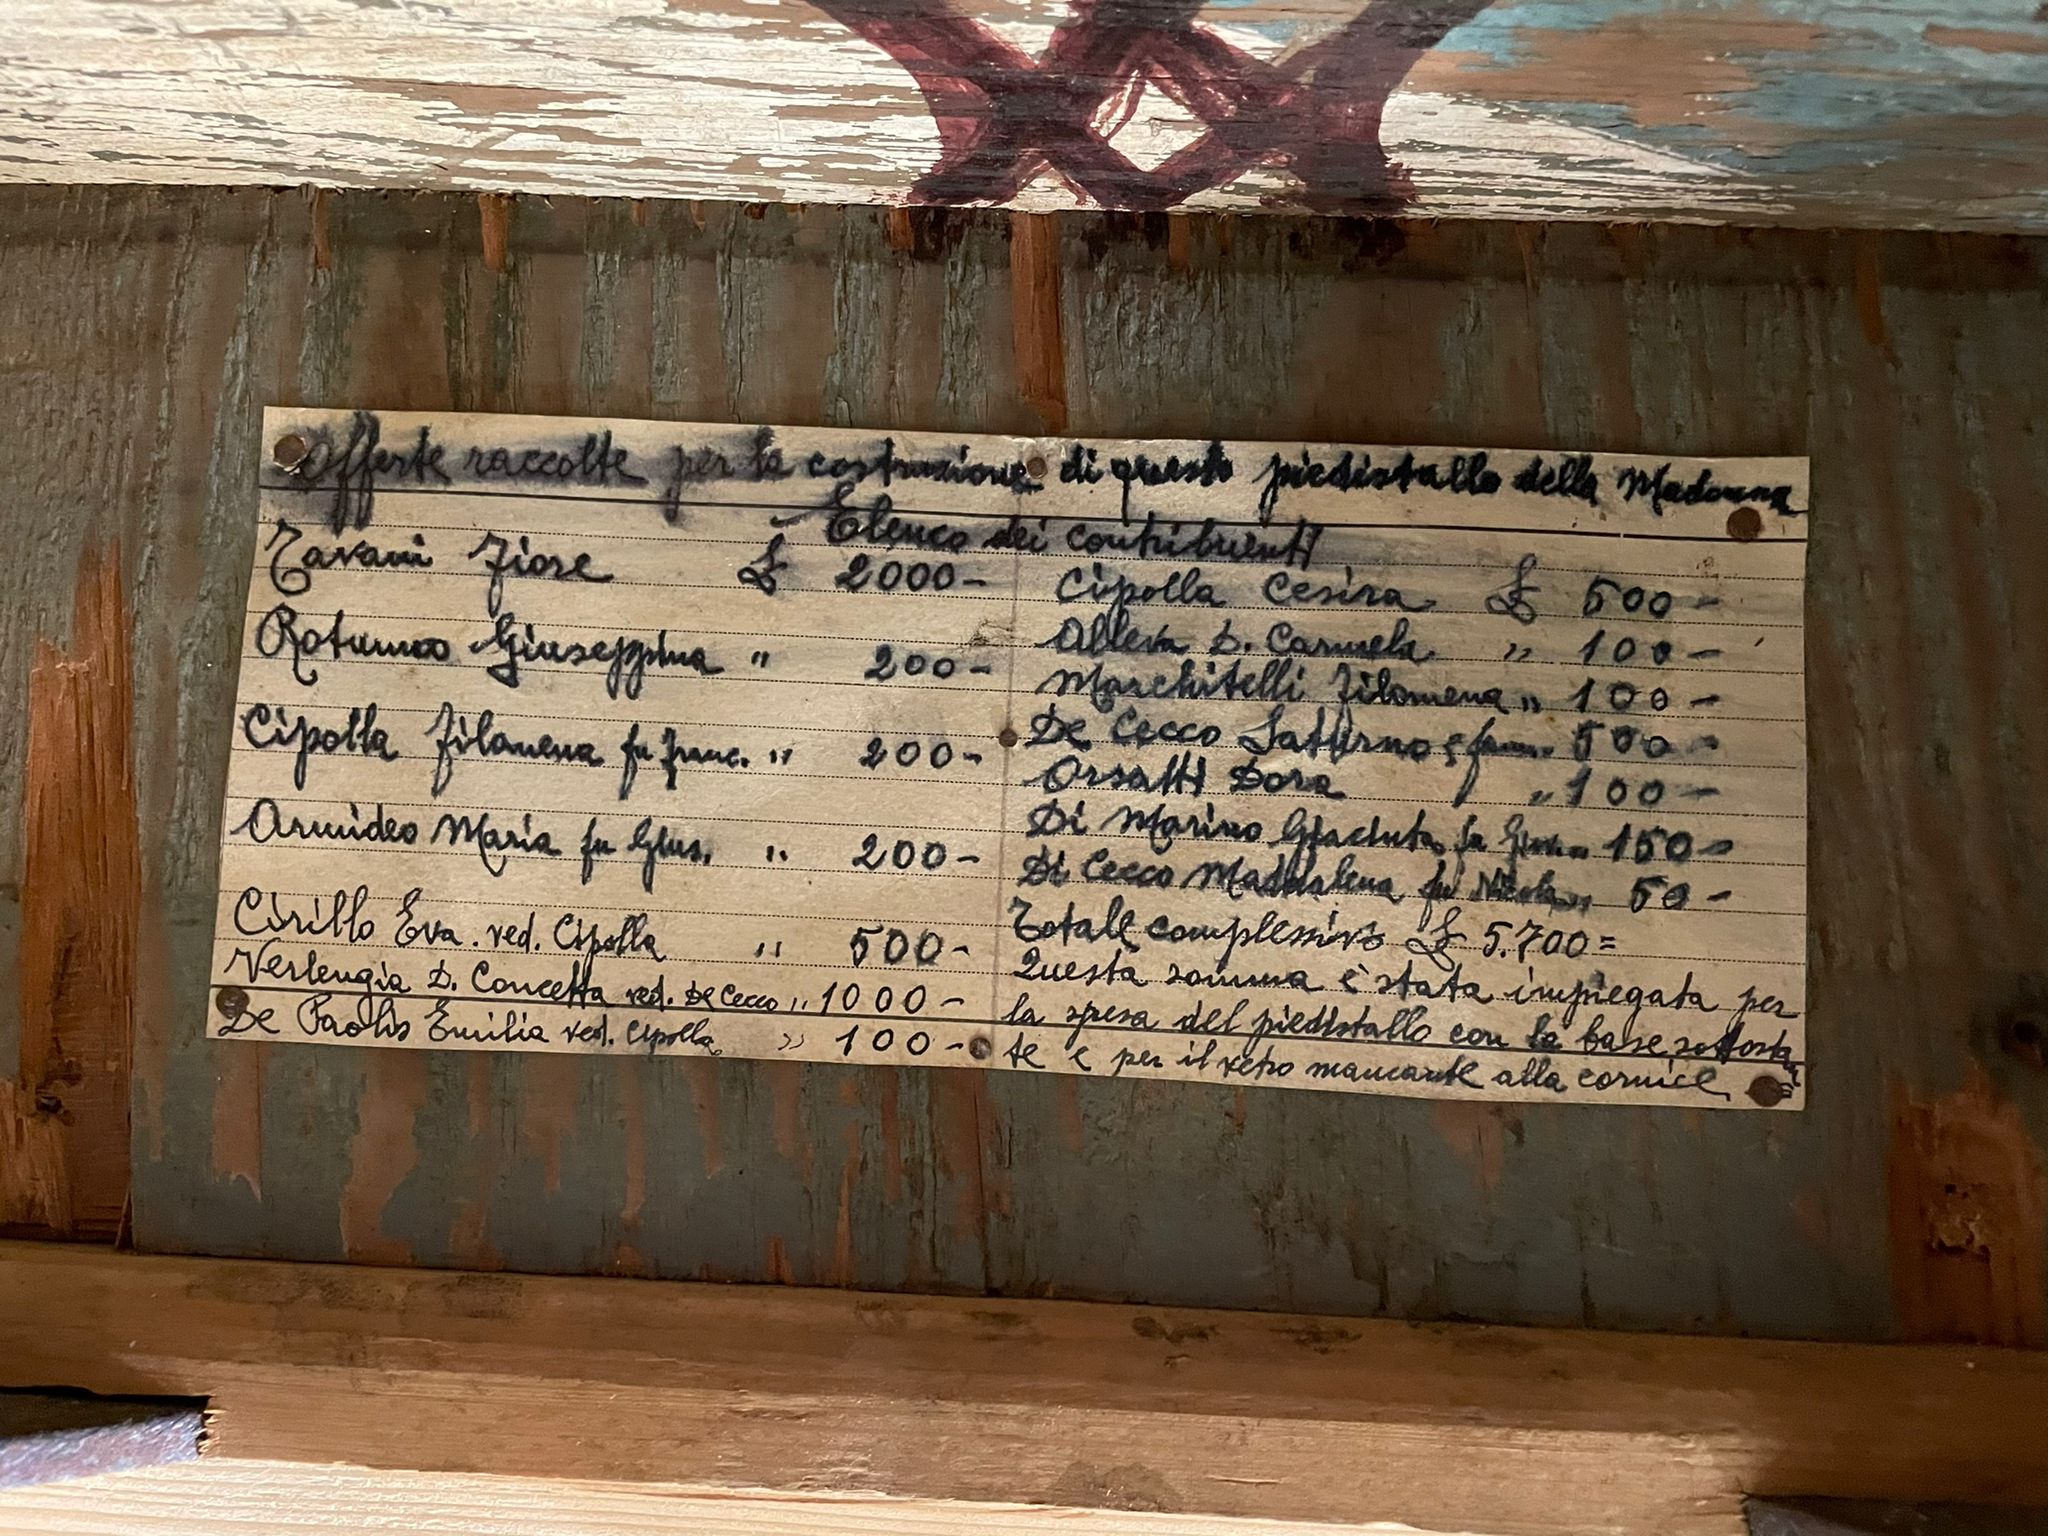 Offerte raccolte per la costruzione di questo piedistallo della Madonna
Elenco dei contribuenti
Tavani Fiore £ 2000-
Rotunno Giuseppina " 200-
Cipolla Filomena fu Franc. " 200-
Armideo Maria fu Gius. " 200-
Cirillo Eva. ved. Cipolla " 500-
Verlengia D. Concetta ved. De Cecco " 1000-
De Paolis Emilia ved. Cipolla " 100-
Cipolla Cesira £ 500-
Alleva D. Carmela " 100-
Marchitelli Filomena " 100-
De Cecco Saturno e fam. " 500-
Orsatti Dora " 100-
Di Marino Giacinta fu " 150-
Di Cecco Maddalena fu Nicola " 50-
Totale complessivo £ 5.700=
Questa somma è stata impiegata per
la spesa del piedistallo con la base sottostan
te e per il vetro mancante alla cornice